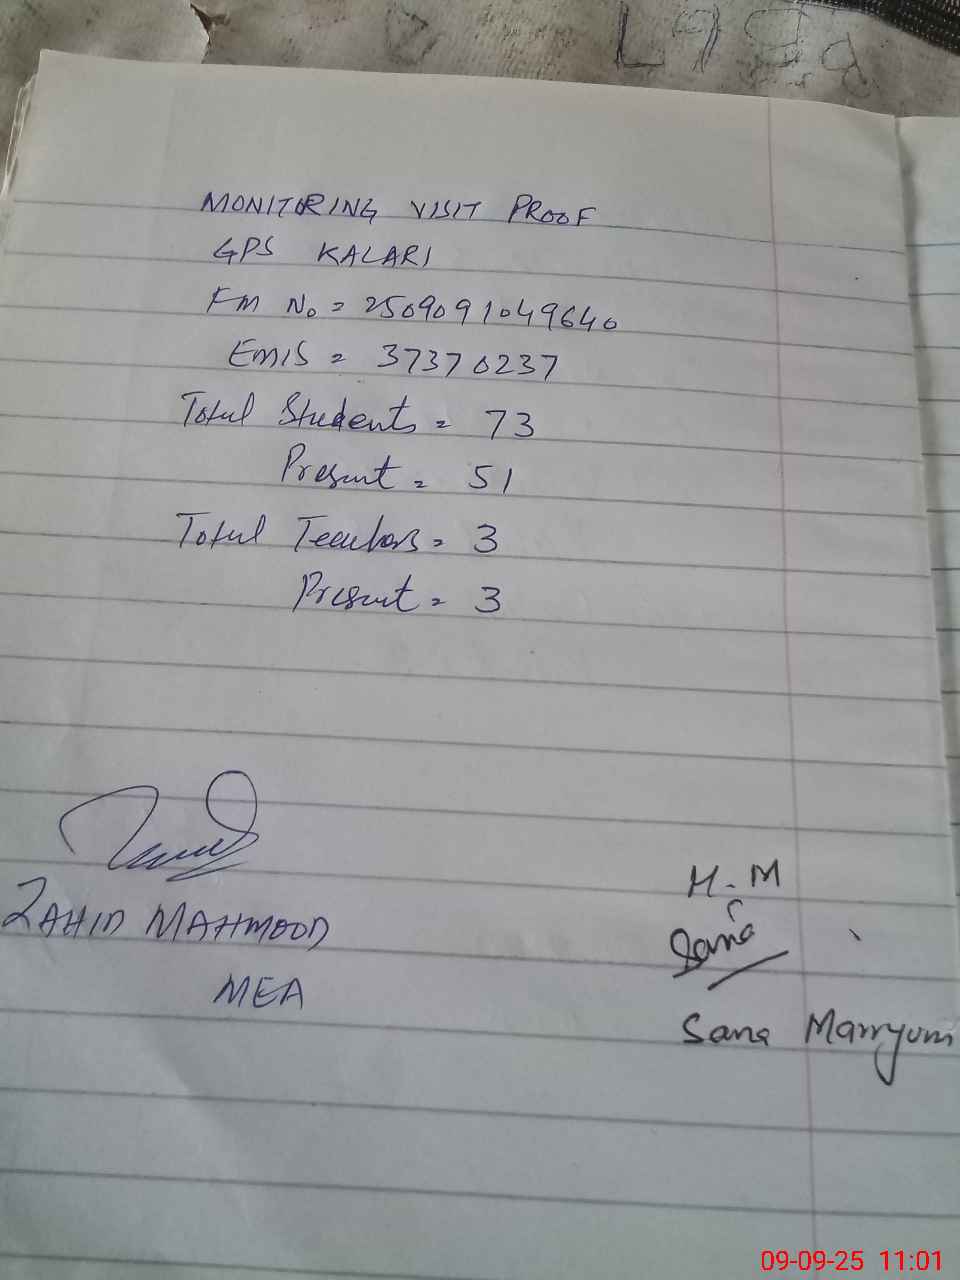 MONITORING VISIT PROOF
GPS KALARI
FM No = 2509091049640
EMIS = 37370237
Total Students = 73
Present = 51
Total Teachers = 3
Present = 3
ZAHID MAHMOOD
MEA
H.M
Sana
Sana Marryum
09-09-25 11:01